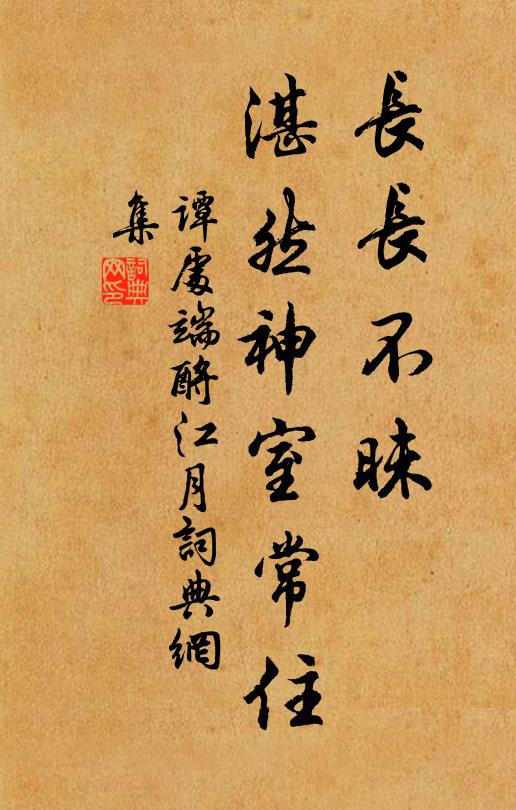 長長不昧
湛然神室常住
譚處端酹江月詞典網
集
詞典
网印